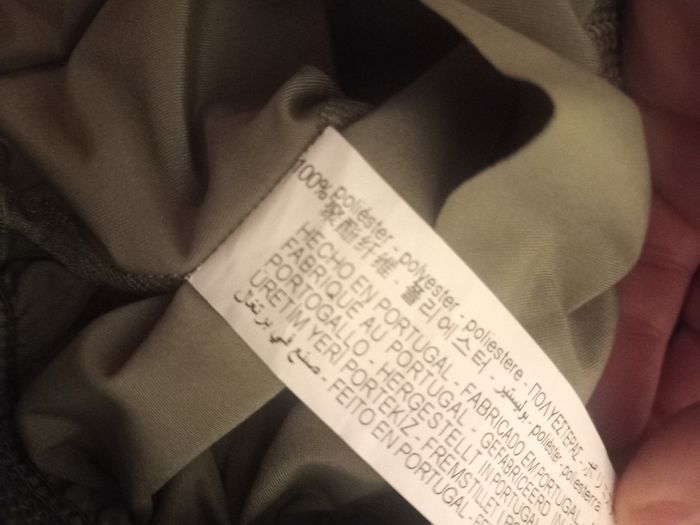 100% poliéster - polyester - poliestere - ΠΟΛΥΕΣΤΕΡΑΣ -
聚酯纤维 - 폴리에스터 - بوليستير - poliéster - poliesterra
HECHO EN PORTUGAL - FABRICADO EM PORTUGAL
FABRIQUÉ AU PORTUGAL - GEFABRICEERD IN
PORTOGALLO - HERGESTELLT IN PORTUGAL
ÜRETİM YERİ PORTEKİZ - FREMSTILLET
صنع في برتغال - FEITO EN PORTUGAL -